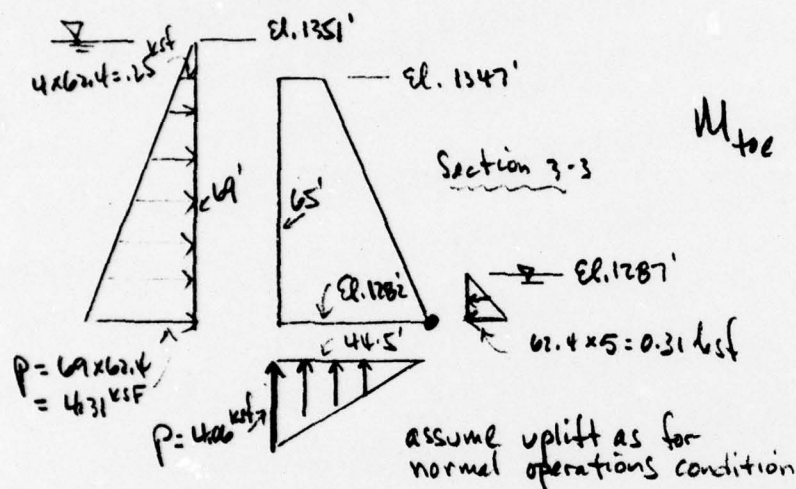 El. 1351'
4x62.4=.25 ksf
El. 1347'
M toe
Section 3-3
69'
65'
El. 1287'
El. 1282'
44.5'
62.4 x 5 = 0.31 ksf
p = 69x62.4
= 4.31 KSF
p= 4.06 ksf
assume uplift as for
normal operations condition